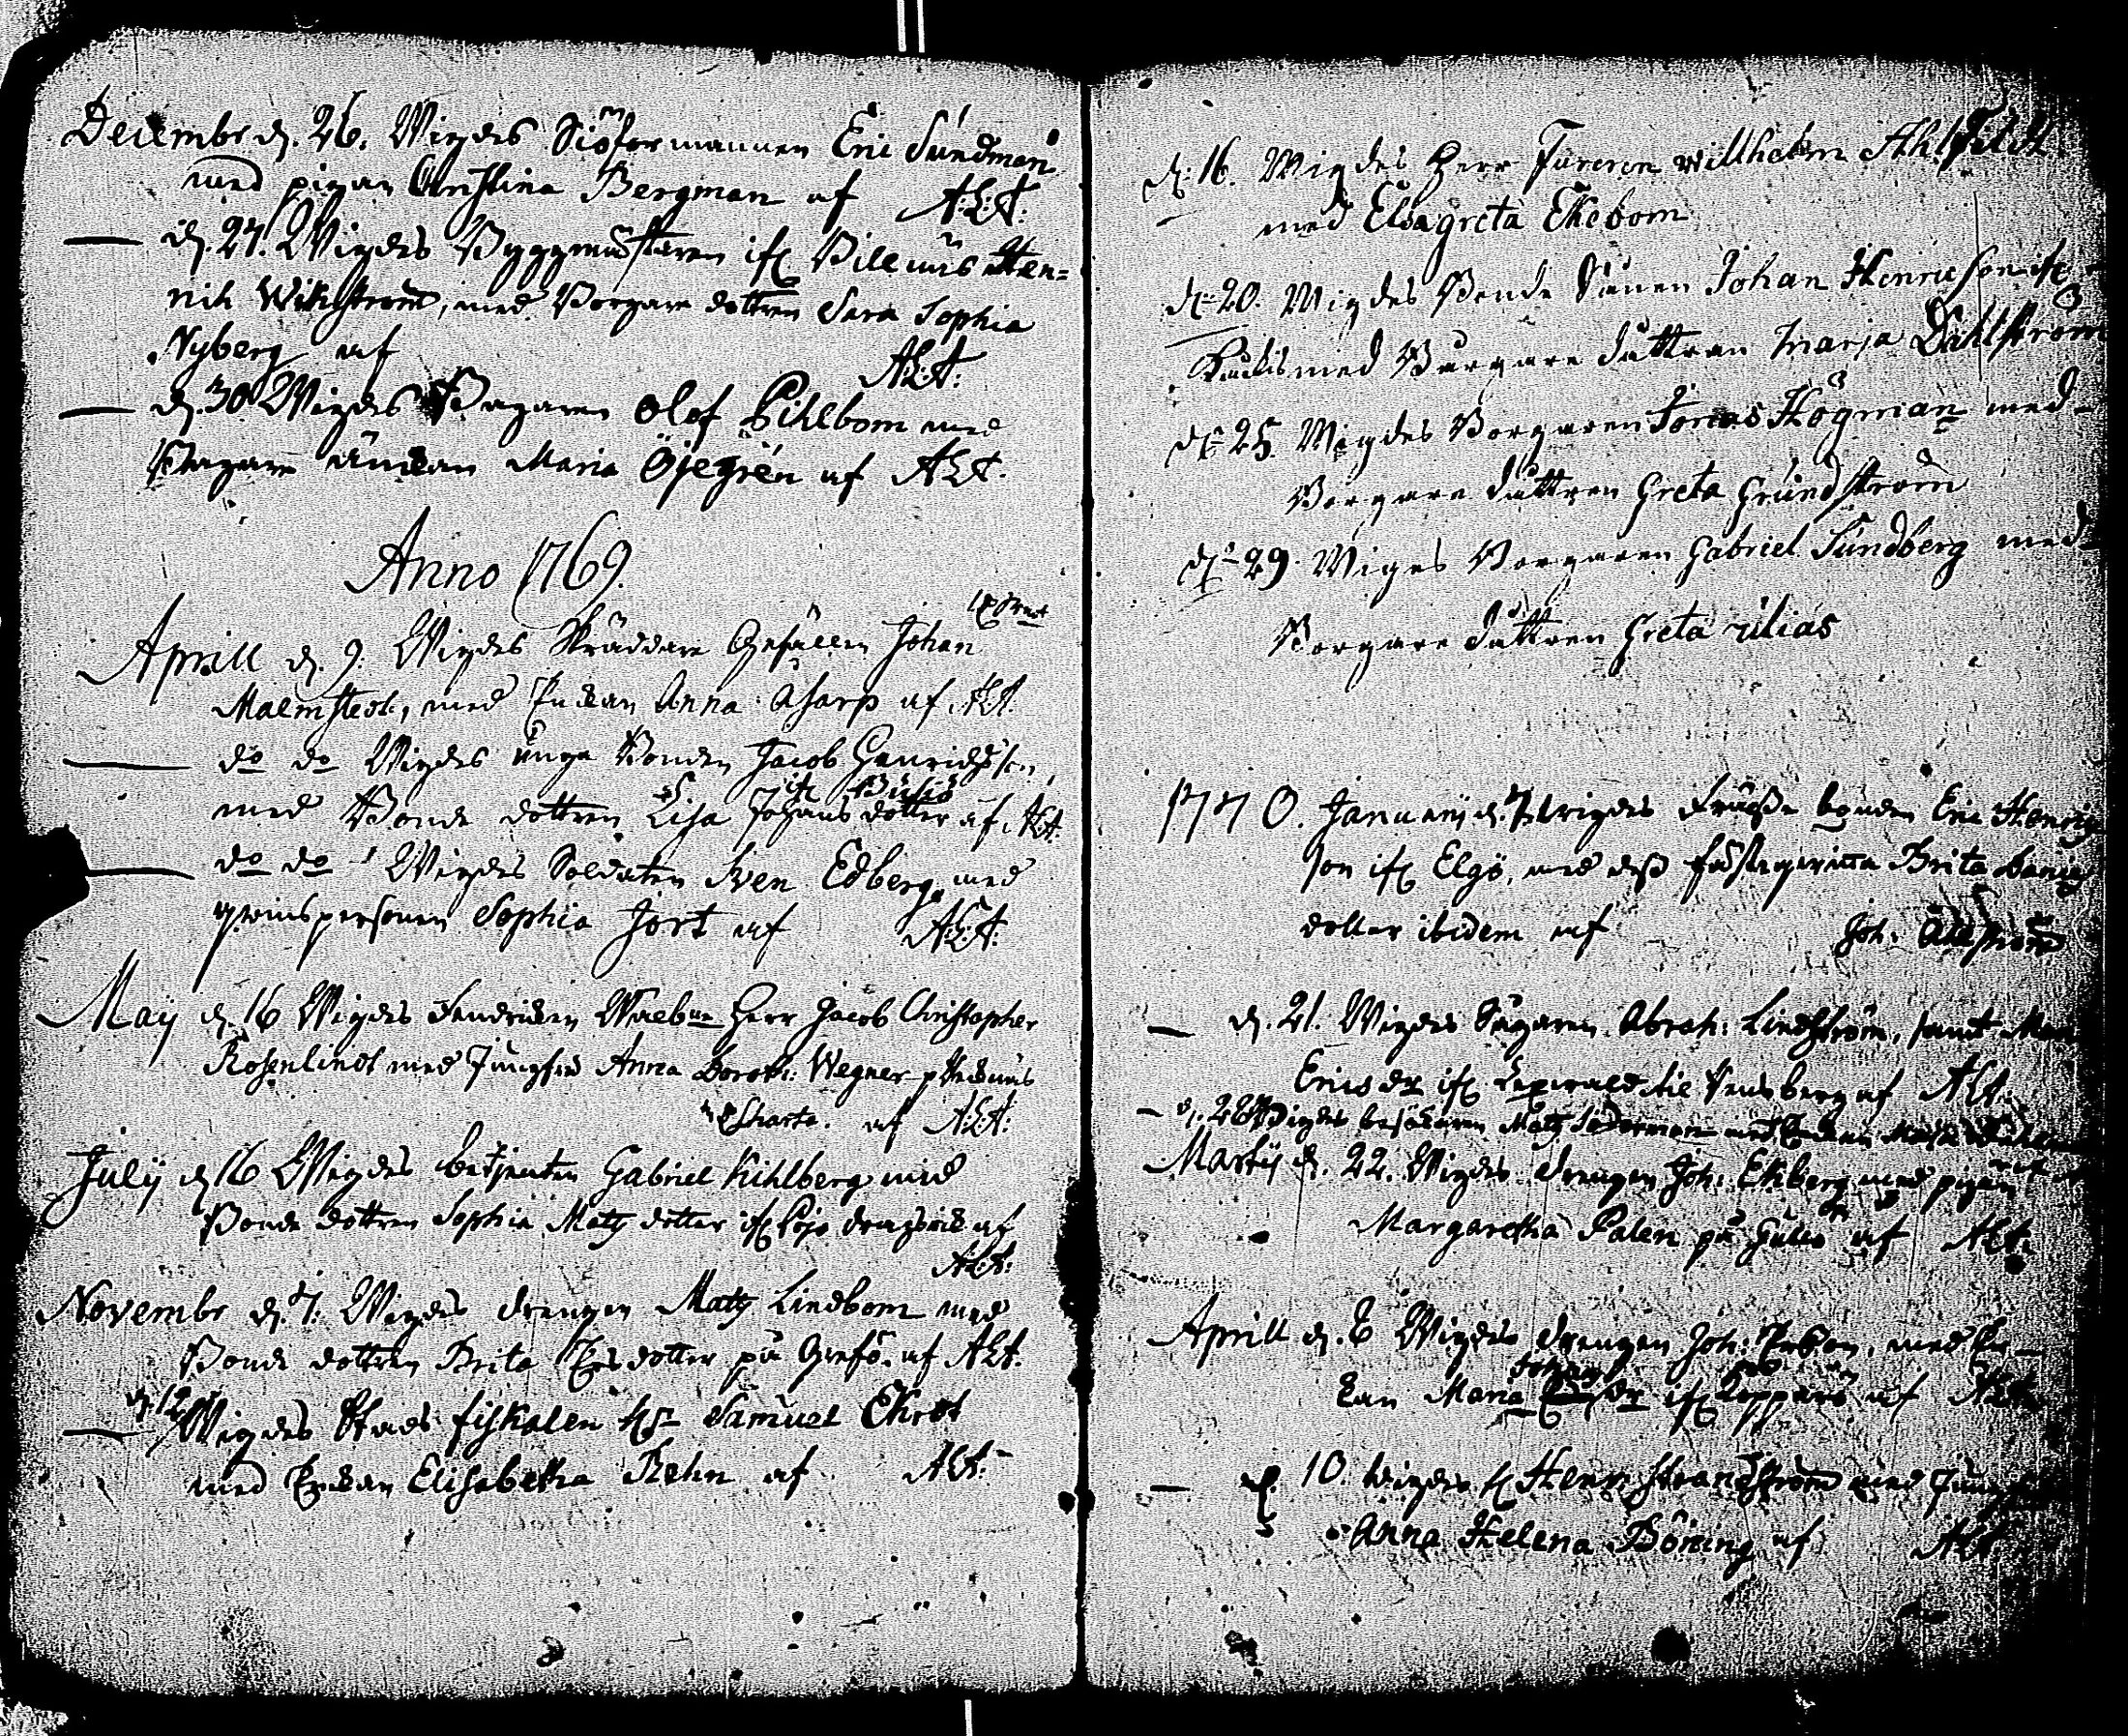 Decembr d. 26. Wigdes Siöförmannen Eric Sundman
med pigan Christina Bergman af A:L:A:
d. 27. Wigdes Byggmästaren ifr. Villnäs Hen-
rik Wikström, med Borgare dottren Sara Sophia
Nyberg af A:L:A:
d. 30 Wigdes Bagaren Olof Pihlbom med
Bagare änckan Maria Öjegrén af ALA.
Anno 1769.
Aprill d. 9. Wigdes Skräddare Gesällen Johan
Malmstedt, med Enckan Anna Asarp af ALA.
do do Wigdes unga Bonden Jacob Henrichsson,
ifr. Busö
med Bonde dottren Lisa Johans dotter af ALA.
do do Wigdes Soldaten Sven Edberg, med
qwinspersonen Sophia Jort af A:L:A:
Maij d. 16 Wigdes Fendricken Herr Jacob Christopher
Rosenlindt med Jungfru Anna Doroth: Wegner
af A:L:A:
Julij d. 16 Wigdes betjenten Gabriel Kihlberg med
Bonde dottren Sophia Matts dotter ifr. Pojo dragswik af
A:L:A:
Novembr d. 7: Wigdes drengen Matts Lindbom med
Bonde dottren Brita Ersdotter på Grefö. af ALA.
d. 12 Wigdes Stads fiskalen Hr Samuel Ekrot
med Enckan Elisabetha Rehn af ALA.
d: 16. Wigdes Herr Fureren Willhelm Ahlfeldt
med Elsagreta Ekebom
d: 20. Wigdes Bonde Sånen Johan Henricson ifr
med Bårgare dåttran Maria Dahlström
d: 25. Wigdes Borgaren Jonas Högman med
Borgare dåttren Greta Grundström
d: 29. Wiges Borgaren Gabriel Sundberg med
Borgare dåttren Greta Ulias
1770. Januarij d. 7 Wigdes Frälse bonden Eric Henrics
son ifr Elgö, med dess fästeqwinna Brita Daniels
dotter ibidem af Joh:
d. 21. Wigdes Sågaren Abrah: Lindström, samt
Ericsdr ifr af ALA.
d. 26 Wigdes Matts Söderman med Enckan
Martij d. 22. Wigdes drengen Joh: Ekberg med pigan
Margaretha Palen på Gulö af ALA.
Aprill d. 6 Wigdes drengen Joh: med En-
Johans
kan Maria dr ifr Koppars af ALA
d. 10. Wigdes H Henr Strandström med Jungfru
Anna Helena Böning af ALA